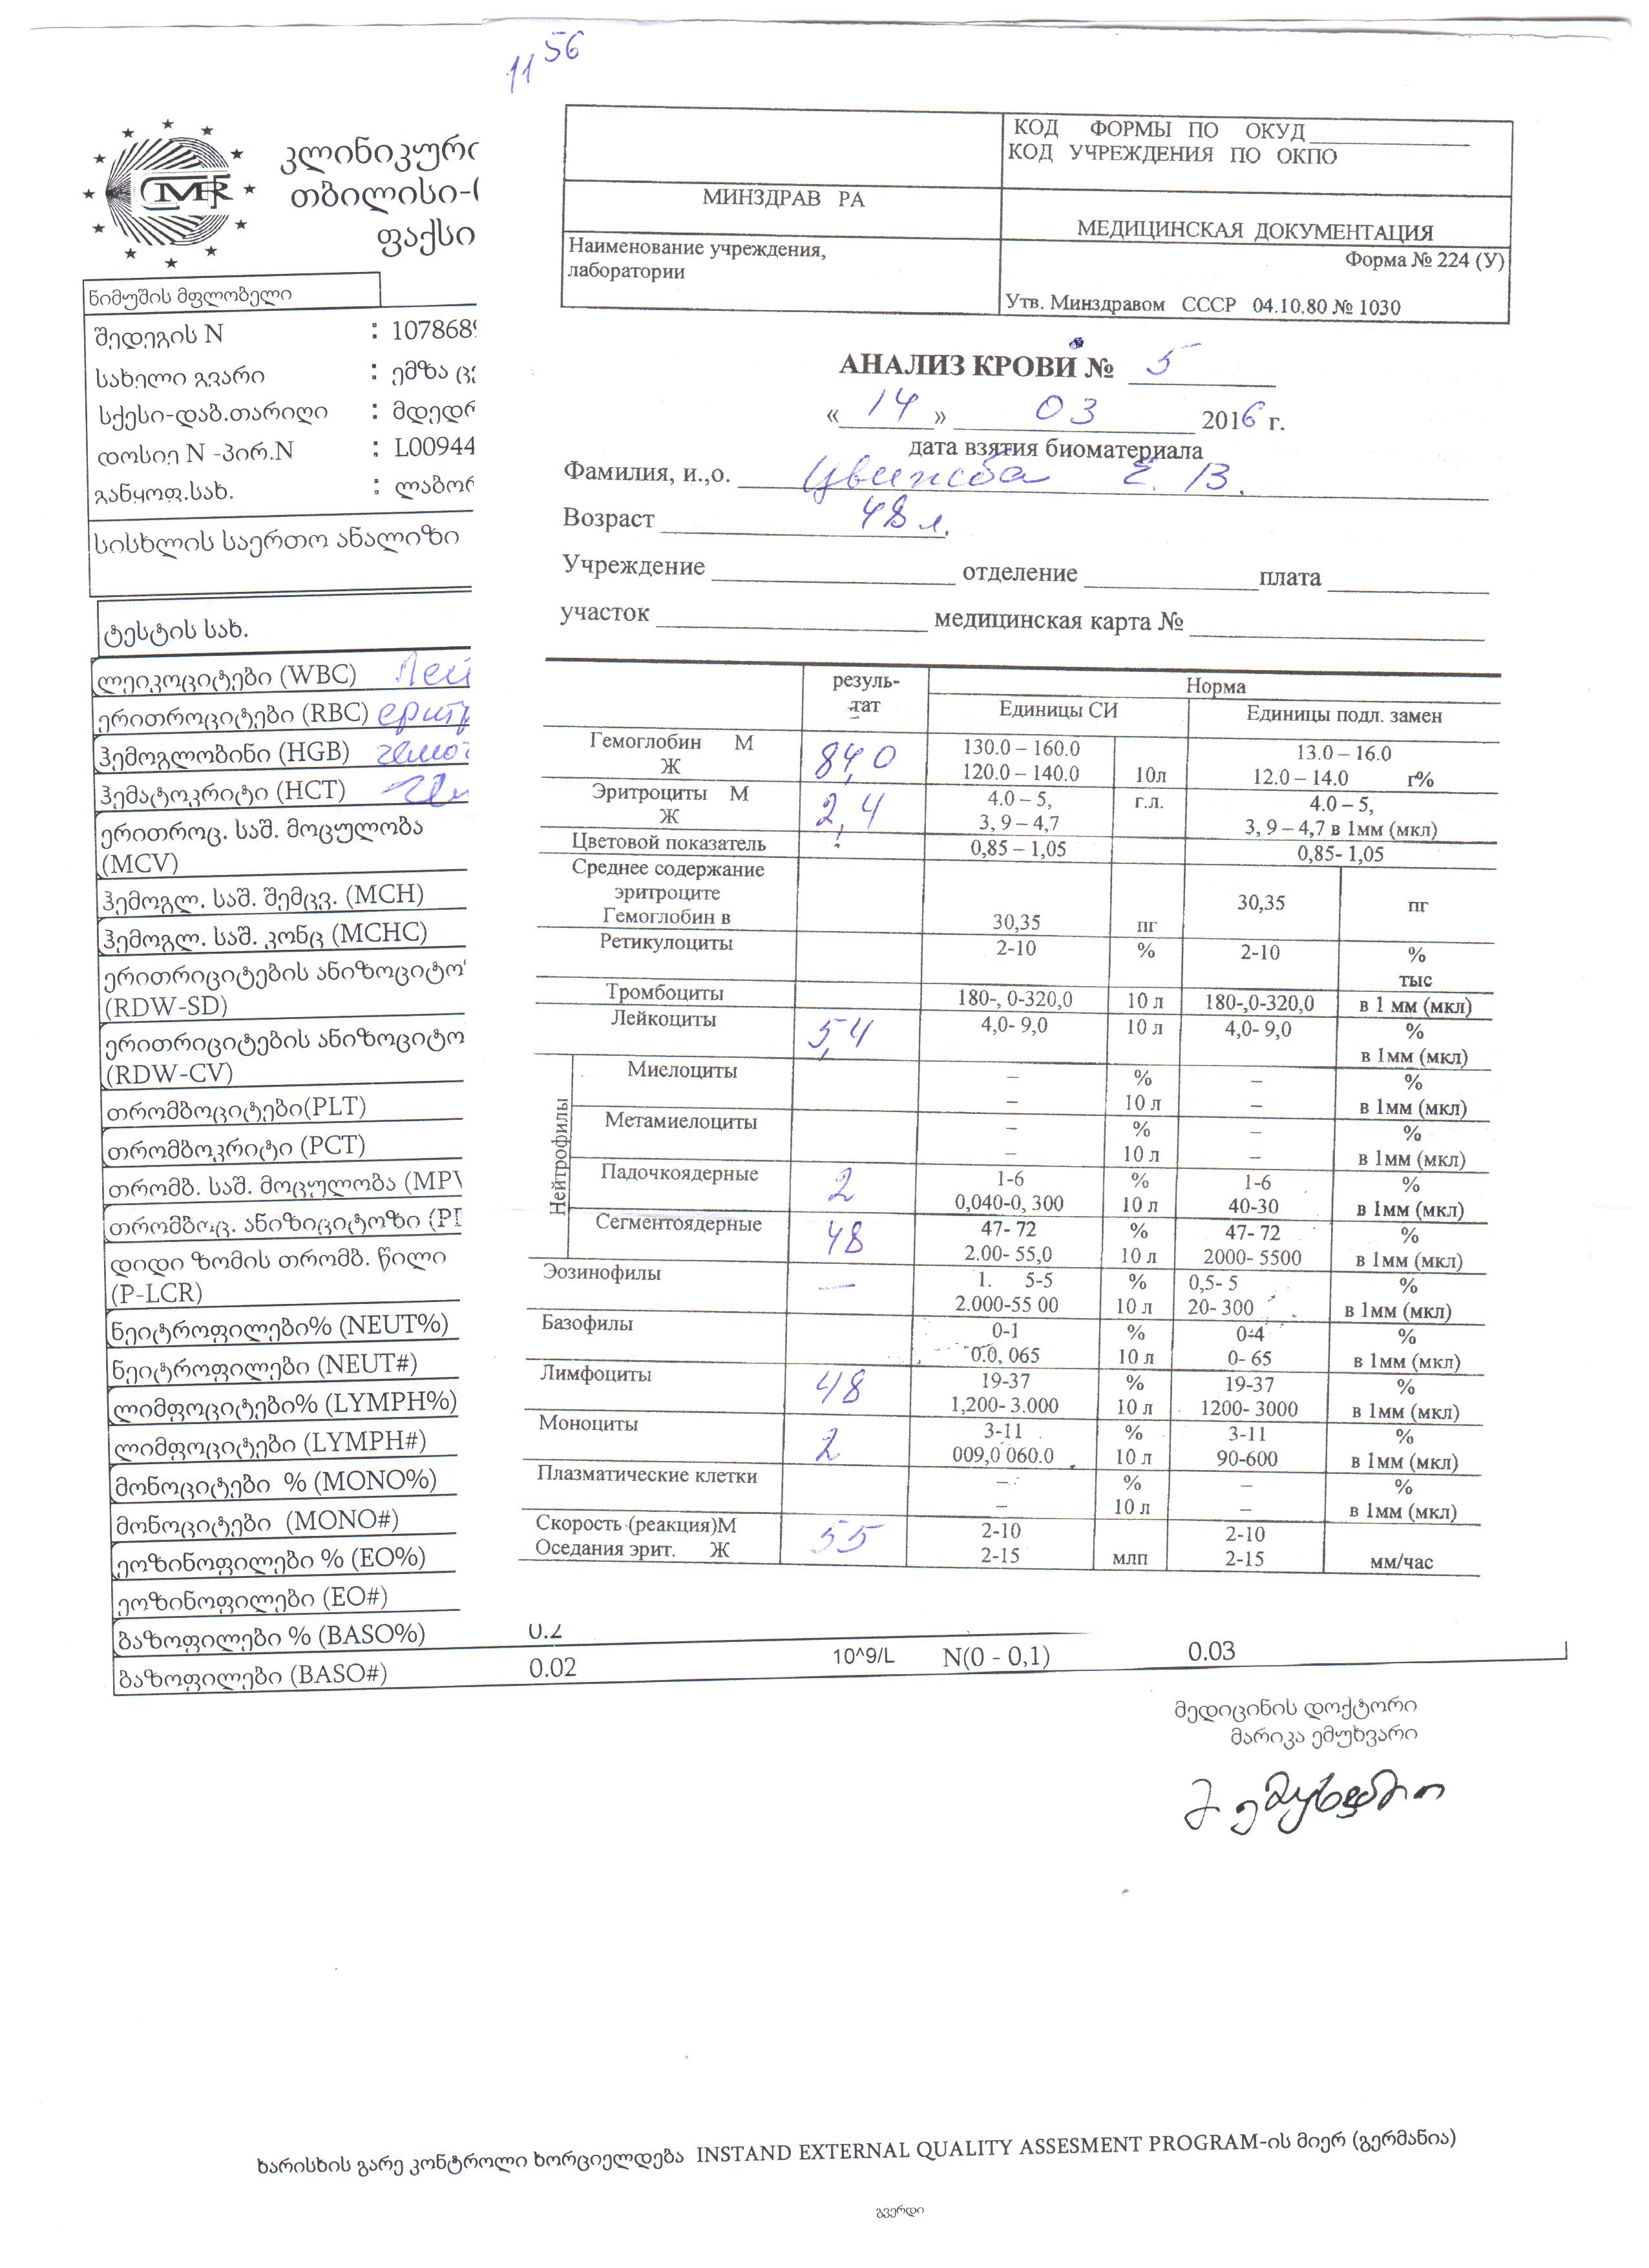 11 56
კლინიკურ
თბილისი-
ფაქსი
ნიმუშის მფლობელი
შედეგის N : 107868
სახელი გვარი : ემზა
სქესი-დაბ.თარიღი : მდედრ
დოსიე N -პირ.N : L00944
განყოფ.სახ. : ლაბორ
სისხლის საერთო ანალიზი
ტესტის სახ.
ლეიკოციტები (WBC) Лей
ერითროციტები (RBC) еритр
ჰემოგლობინი (HGB) гемог
ჰემატოკრიტი (HCT)
ერითროც. საშ. მოცულობა
(MCV)
ჰემოგლ. საშ. შემცვ. (MCH)
ჰემოგლ. საშ. კონც (MCHC)
ერითრიციტების ანიზოციტო
(RDW-SD)
ერითრიციტების ანიზოციტო
(RDW-CV)
თრომბოციტები(PLT)
თრომბოკრიტი (PCT)
თრომბ. საშ. მოცულობა (MPV
თრომბოც. ანიზიციტოზი (PD
დიდი ზომის თრომბ. წილი
(P-LCR)
ნეიტროფილები% (NEUT%)
ნეიტროფილები (NEUT#)
ლიმფოციტები% (LYMPH%)
ლიმფოციტები (LYMPH#)
მონოციტები % (MONO%)
მონოციტები (MONO#)
ეოზინოფილები % (EO%)
ეოზინოფილები (EO#)
ბაზოფილები % (BASO%) 0.2
ბაზოფილები (BASO#) 0.02 10^9/L N(0 - 0,1) 0.03
КОД ФОРМЫ ПО ОКУД
КОД УЧРЕЖДЕНИЯ ПО ОКПО
МИНЗДРАВ РА
МЕДИЦИНСКАЯ ДОКУМЕНТАЦИЯ
Наименование учреждения,
лаборатории
Форма № 224 (У)
Утв. Минздравом СССР 04.10.80 № 1030
АНАЛИЗ КРОВИ № 5
« 14 » 03 2016 г.
дата взятия биоматериала
Фамилия, и.,о. Цвижба Е. В.
Возраст 48 л.
Учреждение отделение плата
участок медицинская карта №
резуль-
тат
Норма
Единицы СИ Единицы подл. замен
Гемоглобин М 84,0 130.0 – 160.0 13.0 – 16.0
Ж 120.0 – 140.0 10л 12.0 – 14.0 г%
Эритроциты М 2,4 4.0 – 5, г.л. 4.0 – 5,
Ж 3, 9 – 4,7 3, 9 – 4,7 в 1мм (мкл)
Цветовой показатель 0,85 – 1,05 0,85- 1,05
Среднее содержание
эритроците 30,35 пг
Гемоглобин в 30,35 пг
Ретикулоциты 2-10 % 2-10 %
тыс
Тромбоциты 180-, 0-320,0 10 л 180-,0-320,0 в 1 мм (мкл)
Лейкоциты 5,4 4,0- 9,0 10 л 4,0- 9,0 %
в 1мм (мкл)
Нейтрофилы
Миелоциты – % – %
– 10 л – в 1мм (мкл)
Метамиелоциты – % – %
– 10 л – в 1мм (мкл)
Падочкоядерные 2 1-6 % 1-6 %
0,040-0, 300 10 л 40-30 в 1мм (мкл)
Сегментоядерные 48 47- 72 % 47- 72 %
2.00- 55,0 10 л 2000- 5500 в 1мм (мкл)
Эозинофилы — 1. 5-5 % 0,5- 5 %
2.000-55 00 10 л 20- 300 в 1мм (мкл)
Базофилы 0-1 % 0-4 %
0.0, 065 10 л 0- 65 в 1мм (мкл)
Лимфоциты 48 19-37 % 19-37 %
1,200- 3.000 10 л 1200- 3000 в 1мм (мкл)
Моноциты 2 3-11 % 3-11 %
009,0 060.0 10 л 90-600 в 1мм (мкл)
Плазматические клетки – % – %
– 10 л – в 1мм (мкл)
Скорость (реакция)М 55 2-10 2-10
Оседания эрит. Ж 2-15 млп 2-15 мм/час
მედიცინის დოქტორი
მარიკა ემუხვარი
ხარისხის გარე კონტროლი ხორციელდება INSTAND EXTERNAL QUALITY ASSESMENT PROGRAM-ის მიერ (გერმანია)
გვერდი